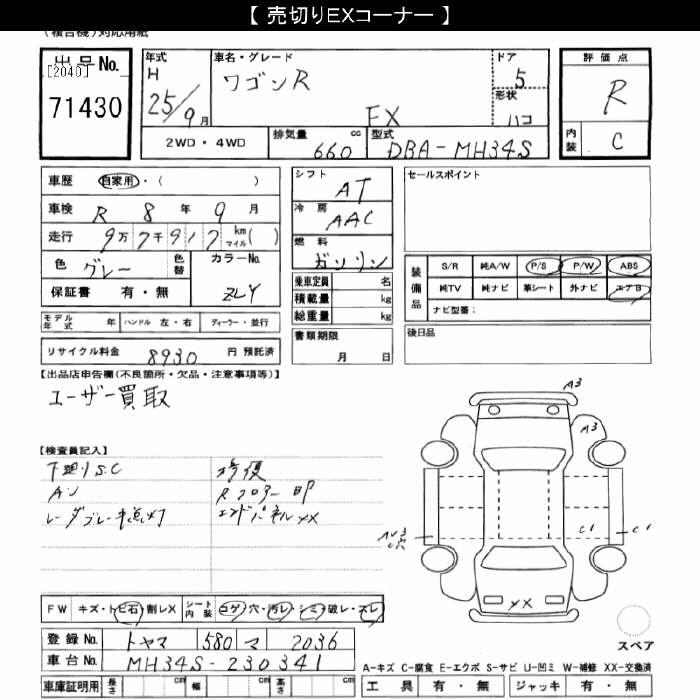 【 売切りEXコーナー 】
(複合機)対応用紙
出品No.
[2040]
71430
年式
H
25/9月
車名・グレード
ワゴンR
FX
ドア
5
形状
ハコ
評価点
R
内装
C
2WD・4WD
排気量
660
cc
型式
DBA-MH34S
車歴
自家用・( )
車検
R 8 年 9 月
走行
9万7千917
km
マイル
( )
色
グレー
色替
カラーNo.
ZLY
保証書 有・無
シフト
AT
冷房
AAC
燃料
ガソリン
乗車定員 名
積載量 kg
総重量 kg
セールスポイント
装備品
S/R 純A/W P/S P/W ABS
純TV 純ナビ 革シート 外ナビ エアB
ナビ型番:
モデル年式 年 ハンドル 左・右 ディーラー・並行
リサイクル料金 8930 円 預託済
書類期限
月 日
後日品
【出品店申告欄(不良箇所・欠品・注意事項等)】
ユーザー買取
【検査員記入】
下廻りS.C
修復
Rフロアー凹
エンドパネルXX
A3
A3
C1
C1
XX
スペア
FW キズ・トビ石・割レX
シート内装 コゲ・穴・汚レ・シミ・破レ・スレ
登録No. トヤマ 580 マ 2036
車台No. MH34S-230341
車庫証明用 長さ cm 幅 cm 高さ cm
A-キズ C-腐食 E-エクボ S-サビ U-凹ミ W-補修 XX-交換済
工具 有・無 ジャッキ 有・無